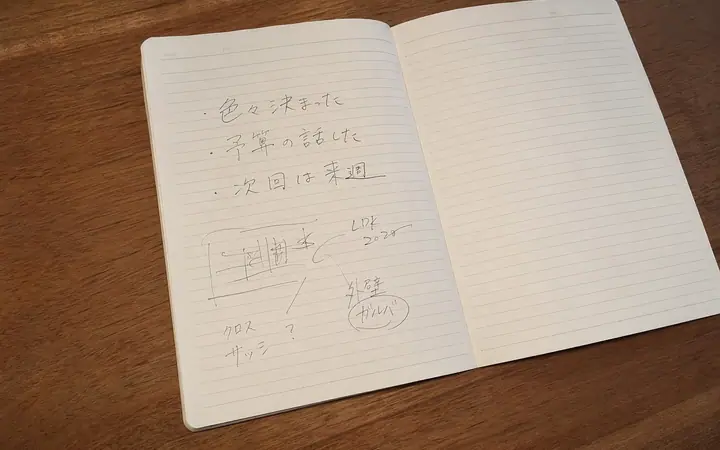 ・色々決まった
・予算の話した
・次回は来週
LDK
外壁
ガルバ
クロス
サッシ ?